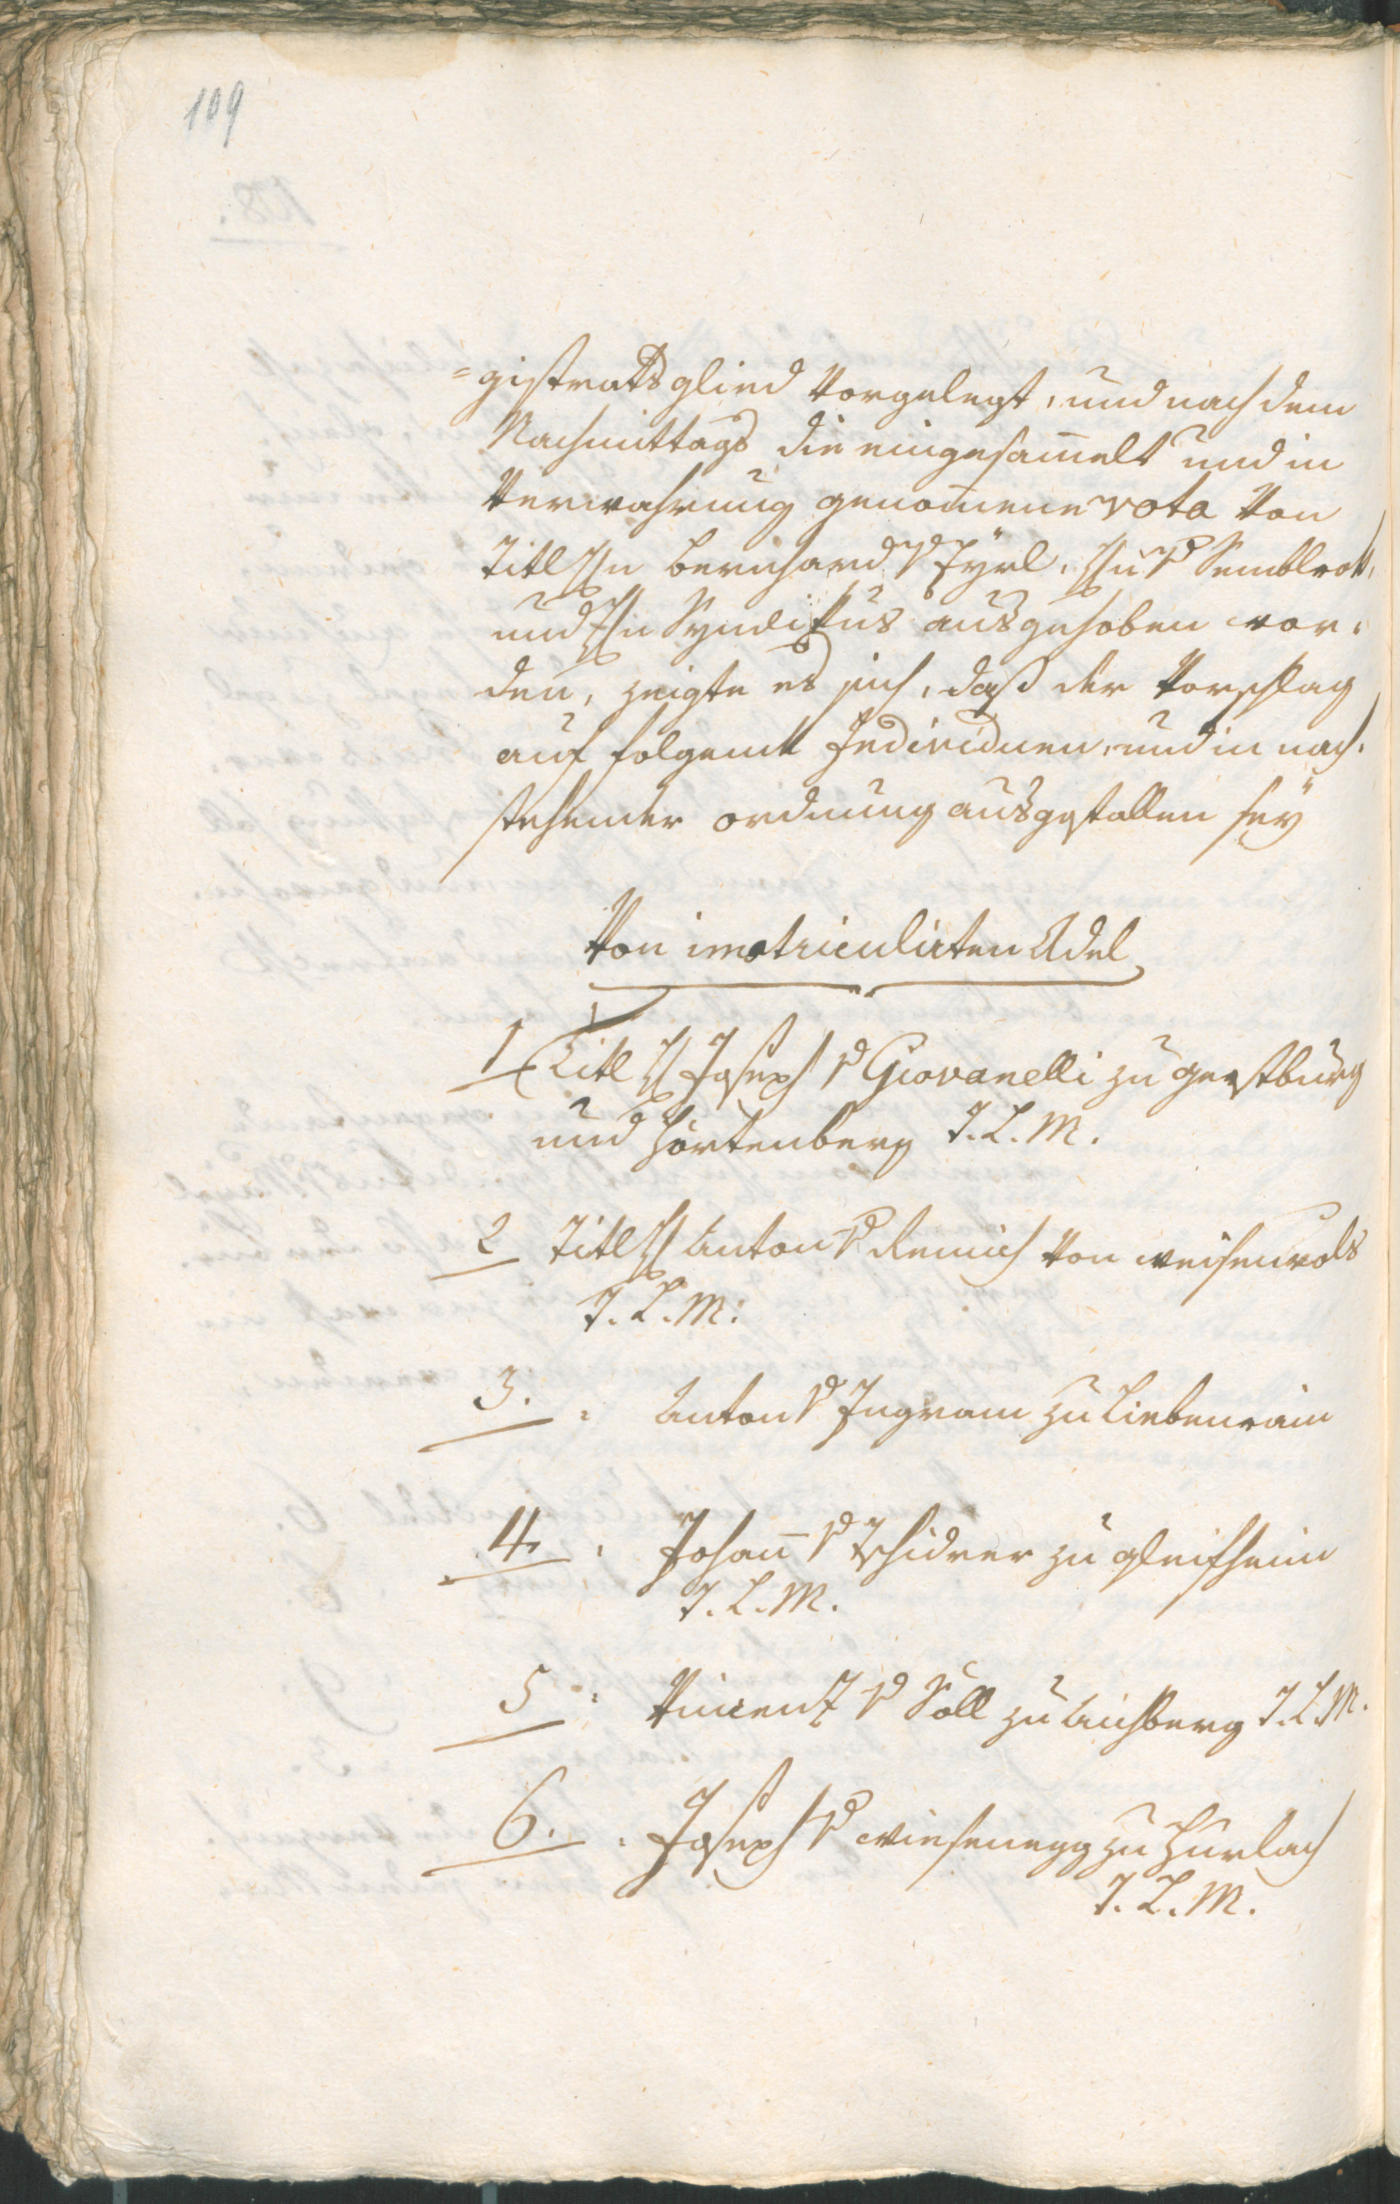 109
=gistratsglied vorgelegt, und nach dem
Nachmittags die eingesam̅elt und in
Verwahrung genom̅ene vota von
Titl Hn Bernhard v Eÿrl, Hn v Semblrok,
und Hn Syndikus ausgehoben wor-
den, zeigte es sich, daß der Vorschlag
auf folgende Individuen, und in nach-
stehender ordnung ausgefallen seÿ
Von imatriculirten Adel
1 Titl H Joseph v Giovanelli zu gerstburg
und Hörtenberg T. L. M.
2 Titl H Anton v Remich von weisenvols
T. L. M:
3. : Anton v Ingram zu Liebenrain
4. : Johan̅ v Tschidrer zu gleifheim
T. L. M.
5 : Vincenz v Söll zu Aichberg T. L. M.
6. : Joseph v wiesenegg zu Hurlach
T. L. M.